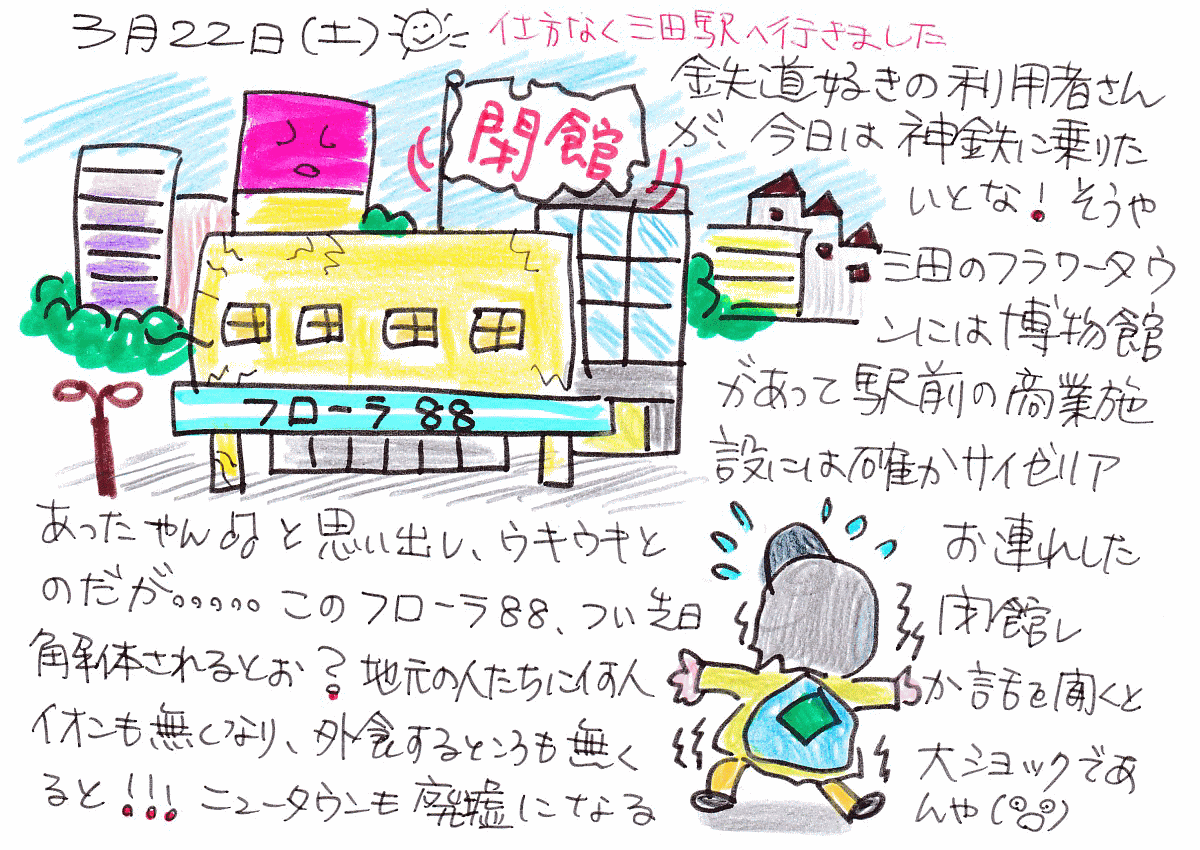 3月22日(土)
仕方なく三田駅へ行きました
鉄道好きの利用者さん
が、今日は神鉄に乗りた
いとな!そうや
三田のフラワータウ
ンには博物館
があって駅前の商業施
設には確かサイゼリア
閉館
フローラ88
あったやん♫と思い出し、ウキウキと お連れした
のだが。。。。。このフローラ88、つい先日 閉館し
解体されるとお?地元の人たちに何人 か話を聞くと
イオンも無くなり、外食するところも無く 大ショックであ
ると!!!ニュータウンも廃墟になる んや